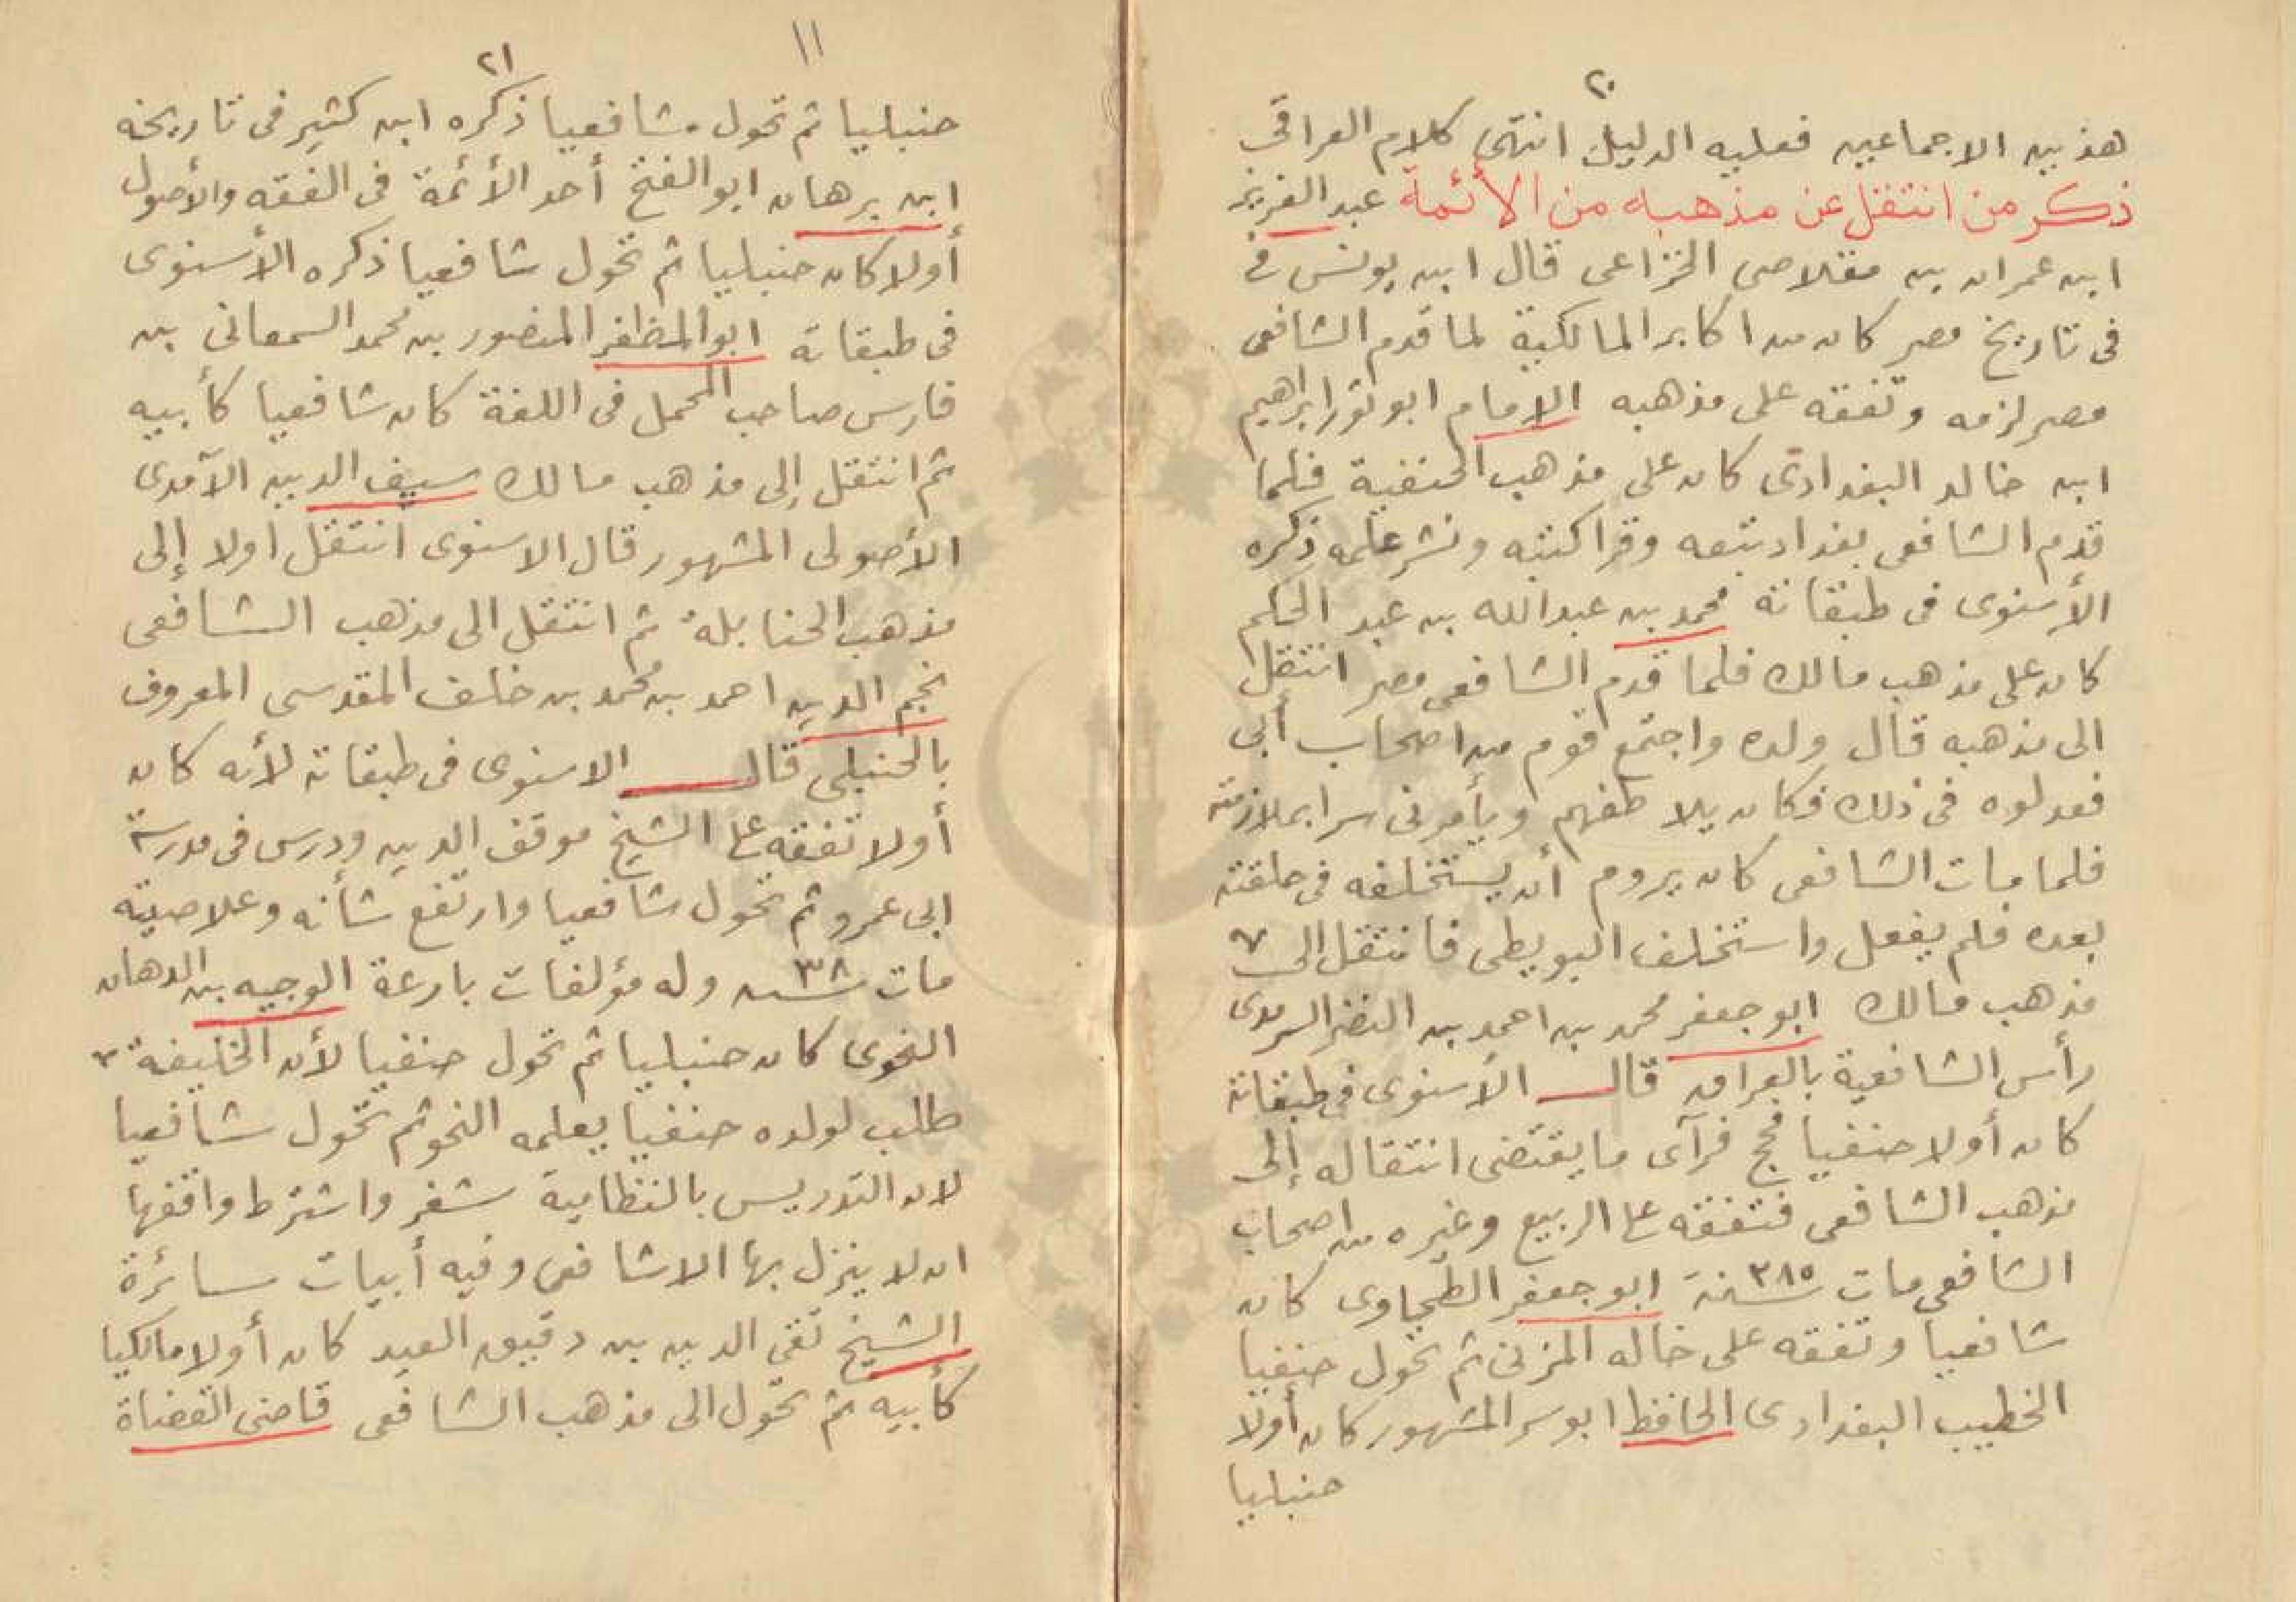 ٢٠
هذين الاجماعين فعليه الدليل انتهى كلام العراقي
ذكر من انتقل عن مذهبه من الأئمة عبد العزيز
ابن عمران بن مقلاص الخزاعى قال ابن يونس فى
فى تاريخ مصر كان من اكابر المالكية لما قدم الشافعى
مصر لزمه وتفقه على مذهبه الإمام ابو ثور ابراهيم
ابن خالد البغدادى كان على مذهب الحنفية فلما
قدم الشافعى بغداد تبعه وقرا كتبه ونشر علمه ذكره
الأسنوى فى طبقاته محمد بن عبدالله بن عبد الحكم
كان على مذهب مالك فلما قدم الشافعى مصر انتقل
الى مذهبه قال ولده واجتمع قوم من اصحاب أبى
فعدلوه فى ذلك فكان يلاطفهم ويأمرنى سرا بملازمته
فلما مات الشافعى كان يروم أن يستخلفه فى حلقته
بعده فلم يفعل واستخلف البويطى فانتقل الى
مذهب مالك ابو جعفر محمد بن احمد بن النضر السرمدى
رأس الشافعية بالعراق قال الأسنوى فى طبقاته
كان أولا حنفيا فحج فرآى ما يقتضى انتقاله إلى
مذهب الشافعى فتفقه على الربيع وغيره من اصحاب
الشافعى مات سنة ٣٨٥ ابو جعفر الطحاوى كان
شافعيا وتفقه على خاله المزنى ثم تحول حنفيا
الخطيب البغدادى الحافظ ابو سر المشهور كان أولا
حنبليا
١١
٢١
حنبليا ثم تحول شافعيا ذكره ابن كثير فى تاريخه
ابن برهان ابو الفتح أحد الأئمة فى الفقه والأصول
أولا كان حنبليا ثم تحول شافعيا ذكره الأسنوى
فى طبقاته ابو المظفر المنصور بن محمد السمعانى بن
فارس صاحب المحمل فى اللغة كان شافعيا كأبيه
ثم انتقل إلى مذهب مالك سيف الدين الآمدى
الأصولى المشهور قال الاسنوى انتقل اولا إلى
مذهب الحنابلة ثم انتقل الى مذهب الشافعى
نجم الدين احمد بن محمد بن خلف المقدسى المعروف
بالحنبلى قال الاسنوى فى طبقاته لأنه كان
أولا تفقه على الشيخ موفق الدين ودرس فى مدرسة
ابى عمر وثم تحول شافعيا وارتفع شأنه وعلاصيته
مات سنه ٣٨ وله مؤلفات بارعة الوجيه بن الدهان
النحوى كان حنبليا ثم تحول حنفيا لأن الخليفة
طلب لولده حنفيا يعلمه النحو ثم تحول شافعيا
لان التدريس بالنظامية شغر واشترط واقفها
ان لا ينزل بها الاشافعى وفيه أبيات سائرة
الشيخ تقى الدين بن دقيق العيد كان أولا مالكيا
كأبيه ثم تحول الى مذهب الشافعى قاضى القضاة